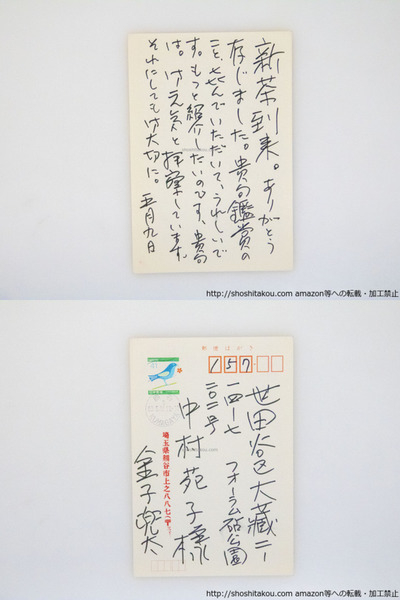 新茶到来。ありがとう
存じました。貴句鑑賞の
こと、喜んでいただいて、うれしいで
す。もっと紹介したいのです、貴句
は。御元気と拝察しています。
それにしても御大切に。五月九日
http://shoshitakou.com amazon等への転載・加工禁止
郵便はがき
157
世田谷区大蔵二ー
一四ー七 フォーラム砧公園
二〇二号
中村苑子様
埼玉県熊谷市上之八八七
金子兜太
http://shoshitakou.com amazon等への転載・加工禁止